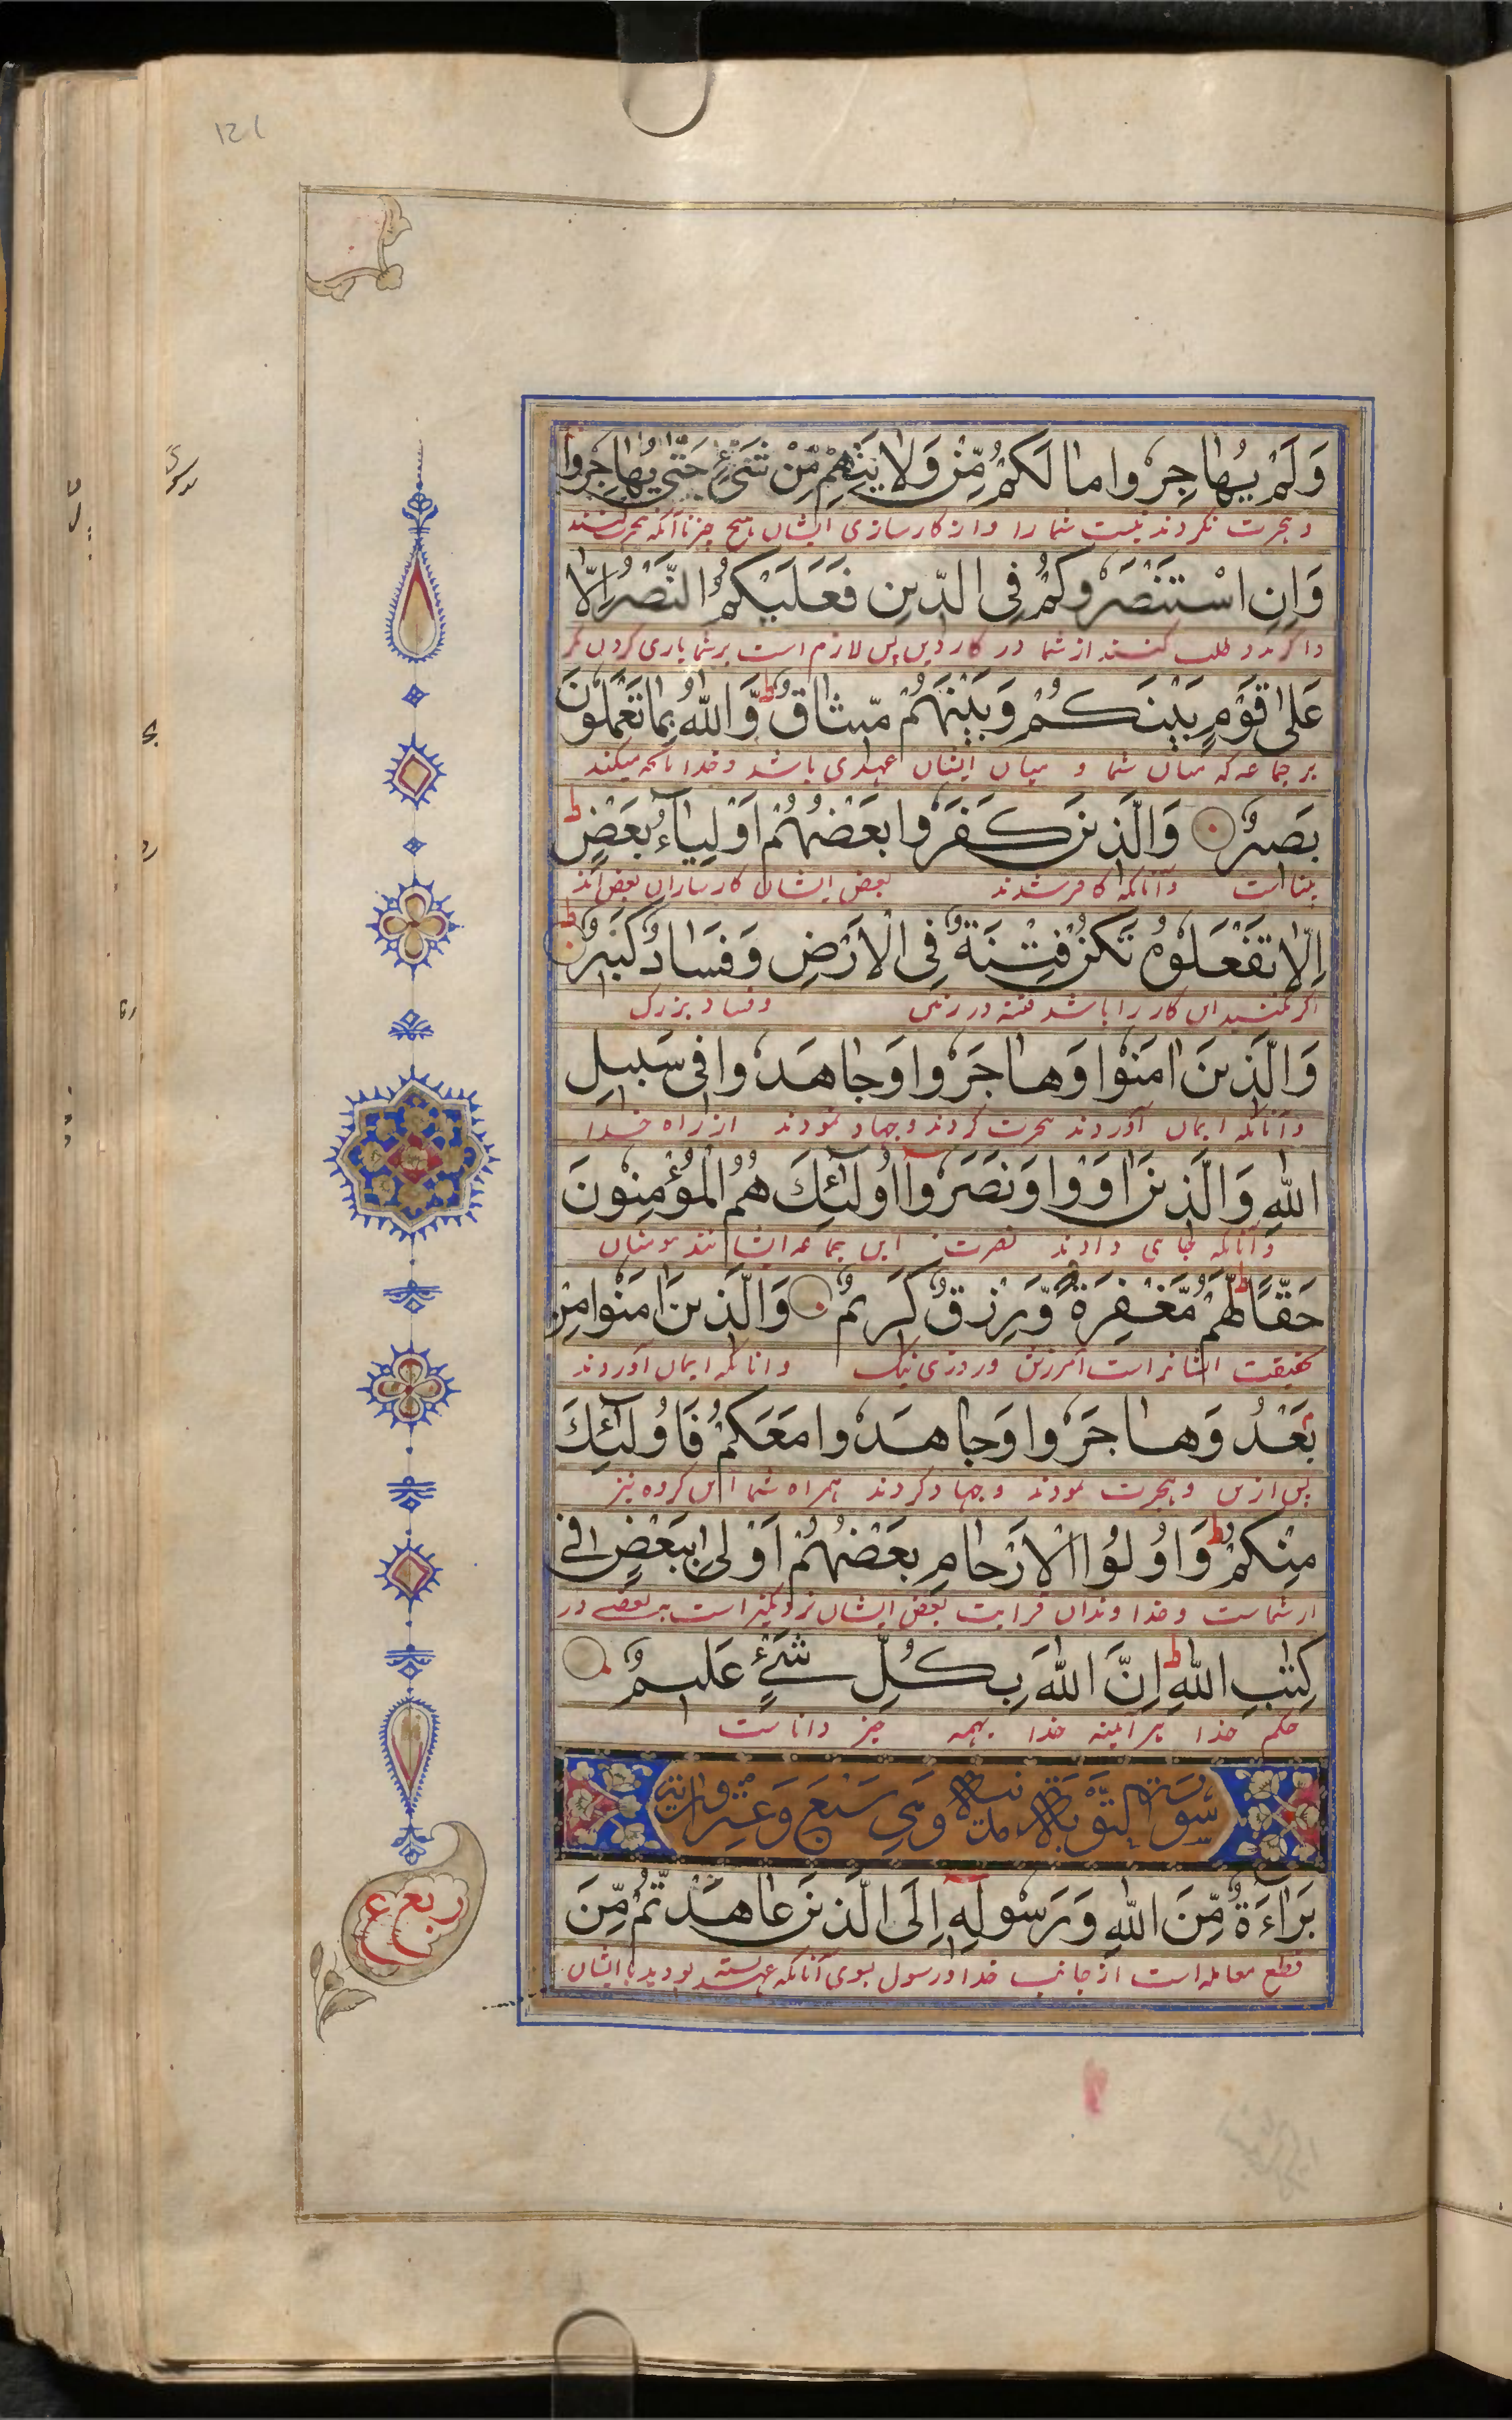 121
وَلَمْ يُهاجِرُوا مالَكُمْ مِّنْ وَلايَتِهِمْ مِّنْ شَیْءٍ حَتّٰی يُهاجِرُوا
و هجرت نکردند نیست شما را از کارسازی ایشان هیچ چیز تا آنکه هجرت کنند
وَاِنِ اسْتَنْصَرُوكُمْ فِی الدّينِ فَعَلَيْكُمُ النَّصْرُ اِلّا
و اگر مدد طلب کنند از شما در کار دین پس لازم است بر شما یاری کردن مگر
عَلٰى قَوْمٍ بَيْنَكُمْ وَبَيْنَهُمْ مّيثاقٌ ط وَّاللّٰهُ بِما تَعْمَلُونَ
بر جماعه که میان شما و میان ایشان عهدی باشد و خدا بآنچه میکنید
بَصيرٌ وَالَّذينَ كَفَرُوا بَعْضُهُمْ اَوْلِيآءُ بَعْضٍ ط
بینا است وآنانکه کافر شدند بعض ایشان کارسازان بعض اند
اِلّا تَفْعَلُوهُ تَكُنْ فِتْنَةٌ فِی الْاَرْضِ وَفَسادٌ كَبيرٌ ط
اگر نکنید این کار را باشد فتنه در زمین و فساد بزرک
وَالَّذينَ اٰمَنُوا وَهاجَرُوا وَجاهَدُوا فی سَبيلِ
وآنانکه ایمان آوردند هجرت کردند و جهاد نمودند از راه خدا
اللّٰهِ وَالَّذينَ اٰوَوْا وَنَصَرُوا اُولٰٓئِكَ هُمُ الْمُؤْمِنُونَ
وآنانکه جای دادند نصرت این جماعه ایشانند مومنان
حَقًّا ط لَهُمْ مَّغْفِرَةٌ وَّرِزْقٌ كَريمٌ وَالَّذينَ اٰمَنُوا مِنْ
بحقیقت ایشانراست آمرزش و روزی نیک وانانکه ایمان آوردند
بَعْدُ وَهاجَرُوا وَجاهَدُوا مَعَكُمْ فَاُولٰٓئِكَ
پس ازین و هجرت نمودند و جهاد کردند همراه شما این کروه نیز
مِنْكُمْ ط وَاُولُوا الْاَرْحامِ بَعْضُهُمْ اَوْلٰى بِبَعْضٍ فی
از شماست و خداوندان قرابت بعض ایشان نزدیکتر است به بعضے در
كِتٰبِ اللّٰهِ ط اِنَّ اللّٰهَ بِكُلِّ شَیْءٍ عَليمٌ
حکم خدا هر آئینه خدا بهمه چیز داناست
سُورَة التَّوْبَة وَهِیَ سَبْعَ وَعِشْرُون
بَرٰآءَةٌ مِّنَ اللّٰهِ وَرَسُولِهٖ اِلَى الَّذينَ عاهَدْتُّمْ مِّنَ
قطع معامله است از جانب خدا و رسول بسوی آنانکه عهد بسته بودید با ایشان
ربع
ع